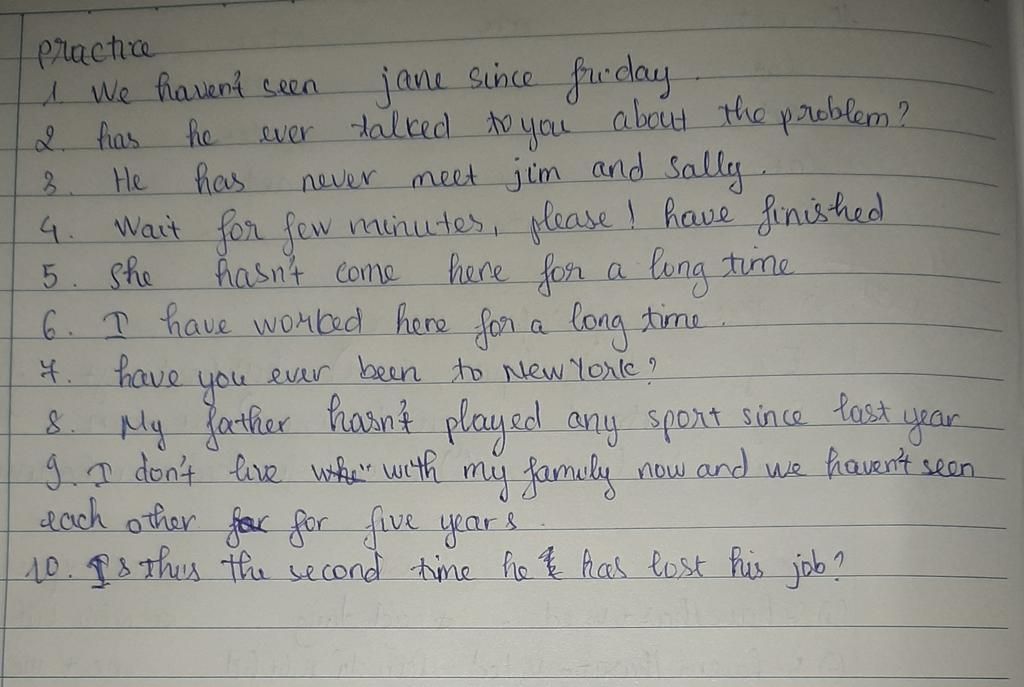 practice
1. We haven't seen jane since friday.
2. has he ever talked to you about the problem?
3. He has never meet jim and sally.
4. Wait for few minutes, please! have finished
5. she hasn't come here for a long time
6. I have worked here for a long time.
7. have you ever been to New York?
8. My father hasn't played any sport since last year
9. I don't live with my family now and we haven't seen
each other for five years.
10. Is this the second time he has lost his job?